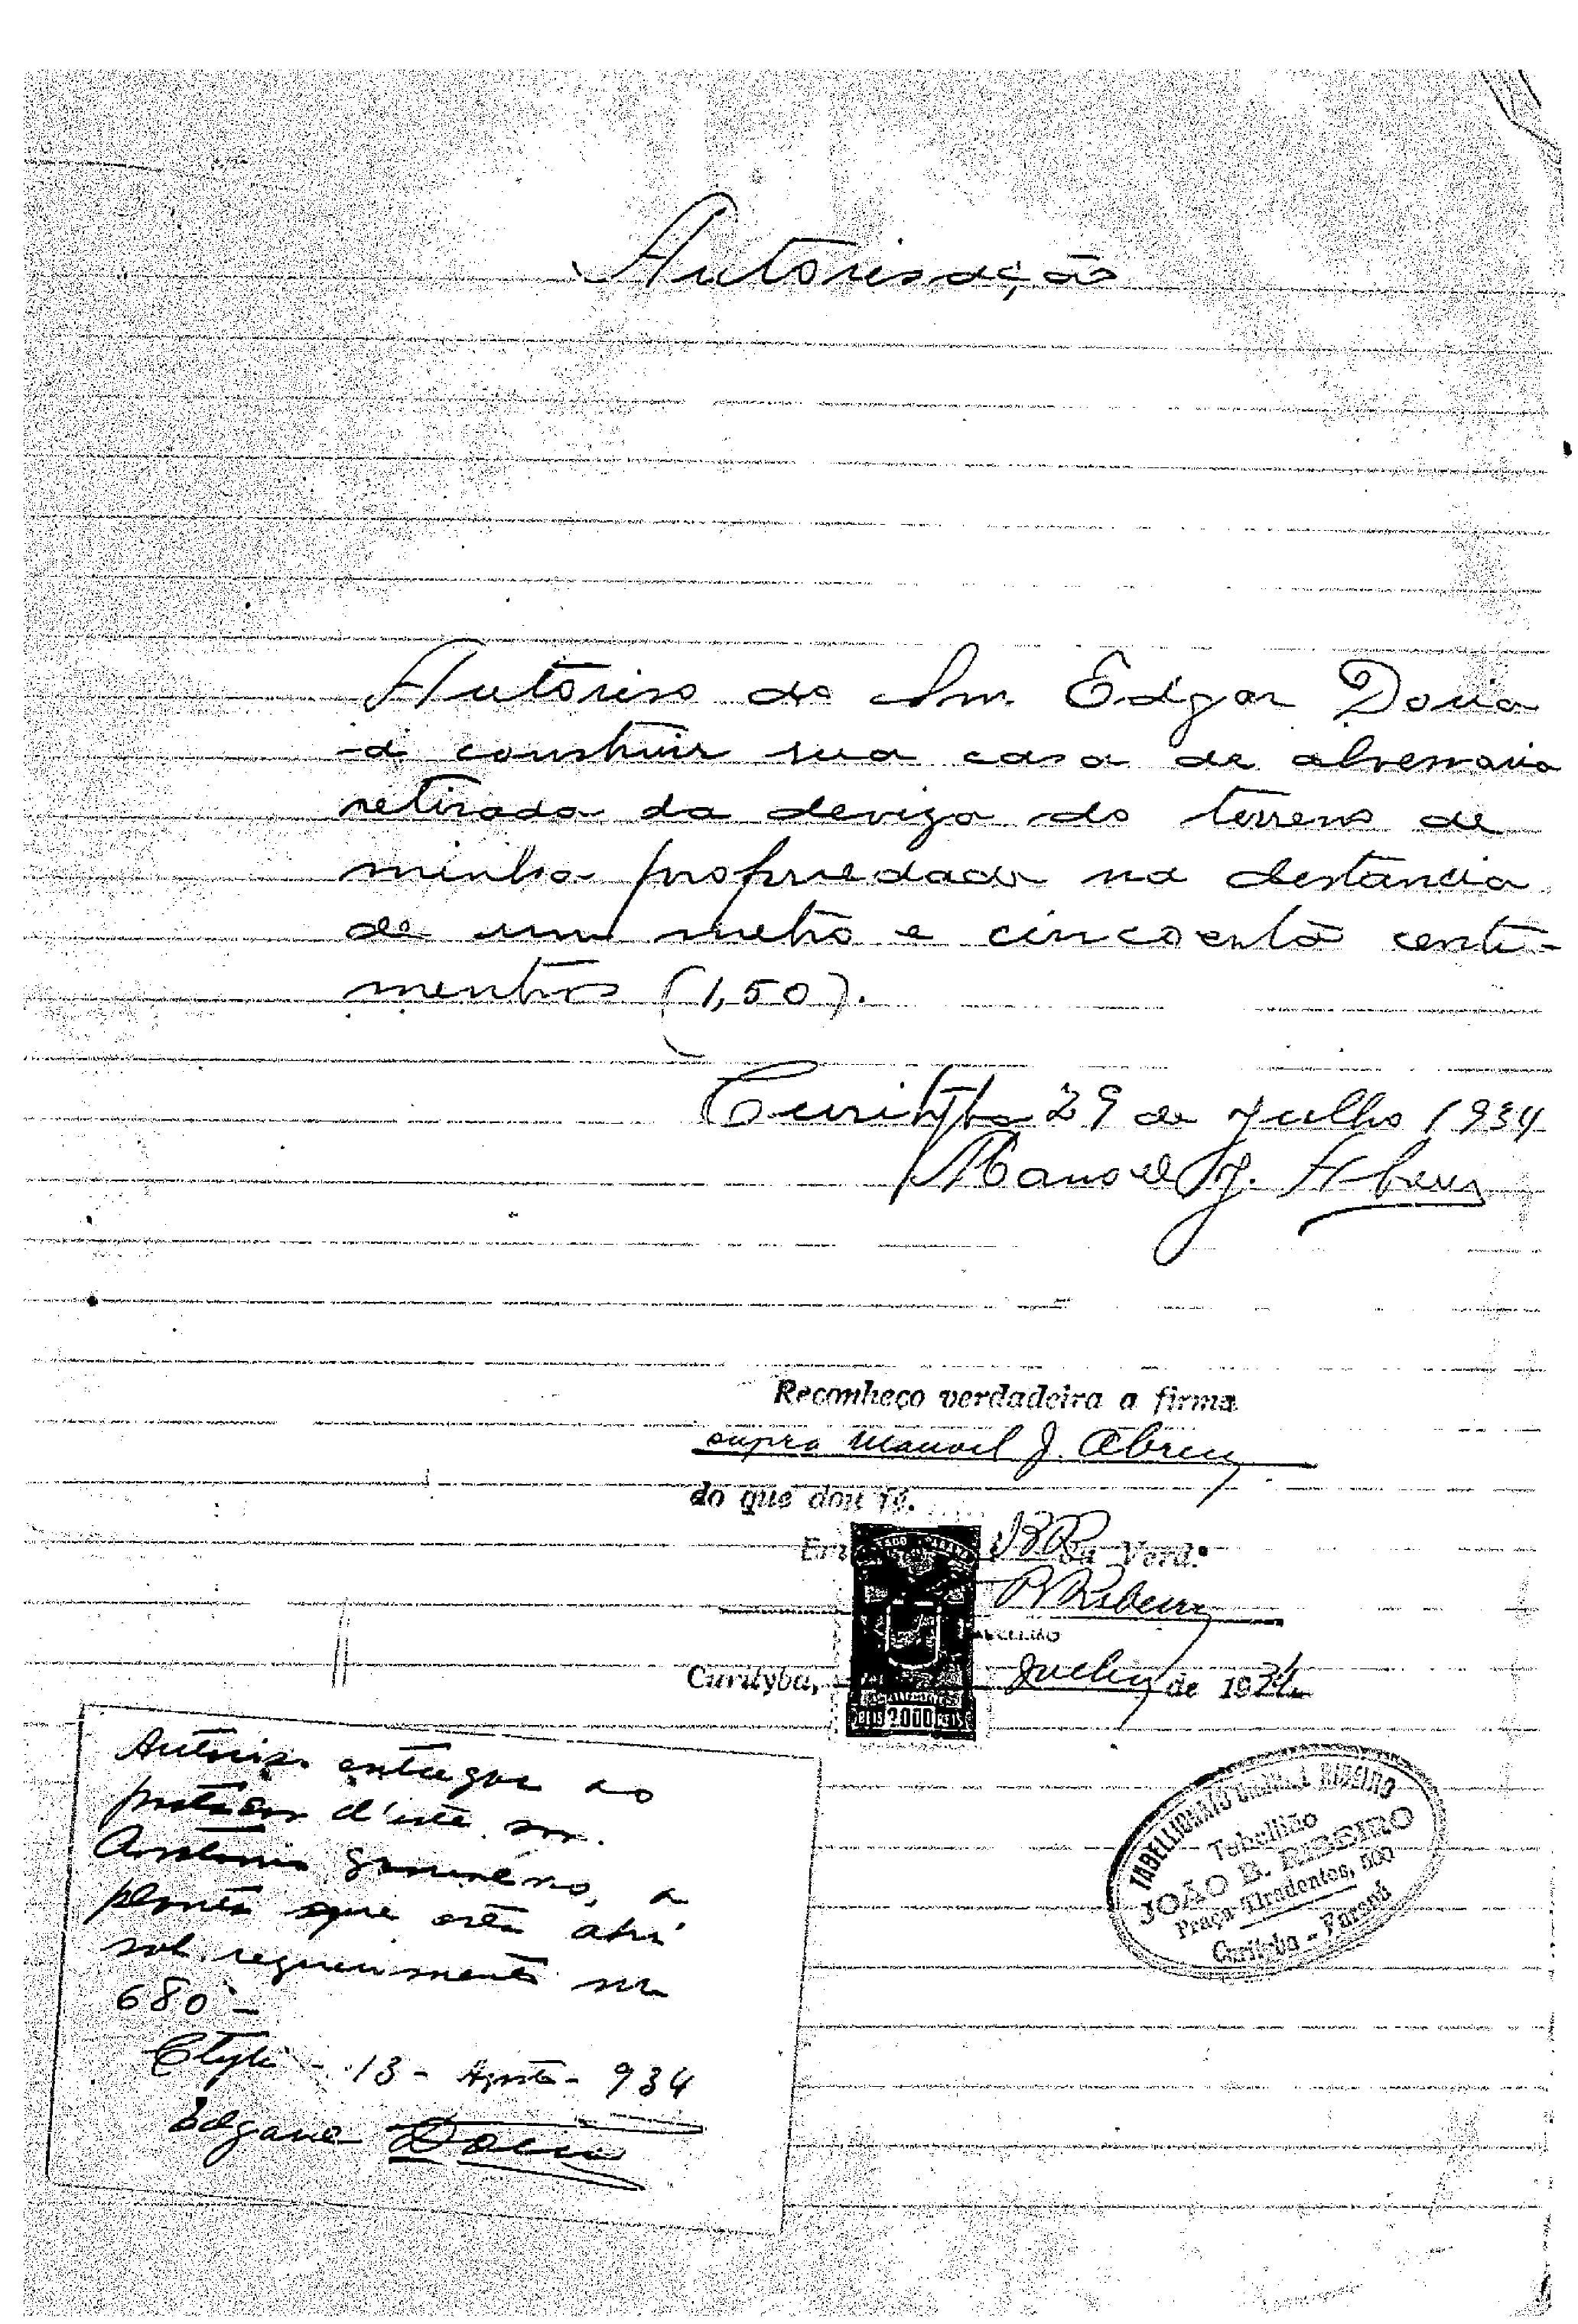 Autorisação
Autoriso ao Snr. Edgar Doria
a construir sua casa de alvenaria
retirada da deviza do terreno de
minha propriedade na destancia
de um metro e cincoenta centi-
mentros (1,50).
Curityba 29 de Julho 1934
Manoel J. Abreu
Reconheço verdadeira a firma
supra Manoel J. Abreu
do que dou fé.
Em da Verd.e
Ribeiro
TABELLIÃO
Curityba, Julho de 1934
REIS 2000 REIS
Autoriso entregar ao
portador d'este snr.
Antonio a
planta que está ahi
sob requerimento nº
680 -
Ctyba - 13 - Agosto - 934
Edgard Doria
TABELLIONATO RIBEIRO
Tabellião
JOÃO B. RIBEIRO
Praça Tiradentes, 500
Curityba - Paraná